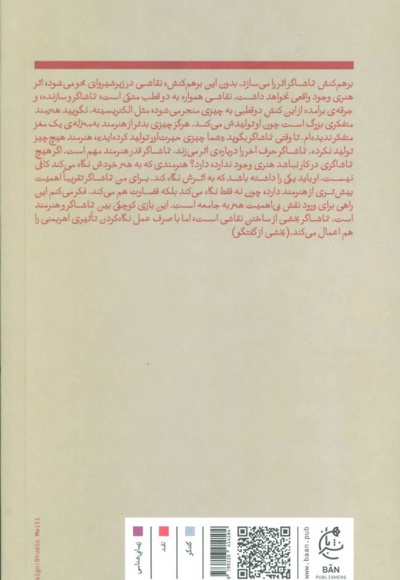 برهم‌کنش تماشاگر اثر را می‌سازد. بدون این برهم‌کنش، نقاشی در زیرشیروانی محو می‌شود؛ اثر
هنری وجود واقعی نخواهد داشت. نقاشی همواره به دو قطب متکی است؛ تماشاگر و سازنده، و
جرقه‌ی برآمده از این کنش دوقطبی به چیزی منجر می‌شود؛ مثل الکتریسیته. نگویید هنرمند
متفکری بزرگ است چون او تولیدش می‌کند. هرگز چیزی بدتر از هنرمند به‌منزله‌ی یک مغز
متفکر ندیده‌ام. تا وقتی تماشاگر بگوید «شما چیزی حیرت‌آور تولید کرده‌اید» هنرمند هیچ چیز
تولید نکرده. تماشاگر حرف آخر را درباره‌ی اثر می‌زند. تماشاگر قدر هنرمند مهم است. اگر هیچ
تماشاگری در کار نباشد هنری وجود ندارد؛ دارد؟ هنرمندی که به هنر خودش نگاه می‌کند کافی
نیست. او باید یکی را داشته باشد که به اثرش نگاه کند. برای من تماشاگر تقریباً اهمیت
بیش‌تری از هنرمند دارد؛ چون نه فقط نگاه می‌کند بلکه قضاوت هم می‌کند. فکر می‌کنم این
راهی برای ورود نقش بی‌اهمیت هنر به جامعه است. این بازی کوچکی بین تماشاگر و هنرمند
است. تماشاگر بخشی از ساختن نقاشی است، اما با صرف عمل نگاه کردن تأثیری اهریمنی را
هم اعمال می‌کند. (بخشی از گفتگو)
زیبایی‌شناسی
نقد
گفتگو
www.baan.pub
نشر بان
BĀN
PUBLISHERS
sign:Studio Melli